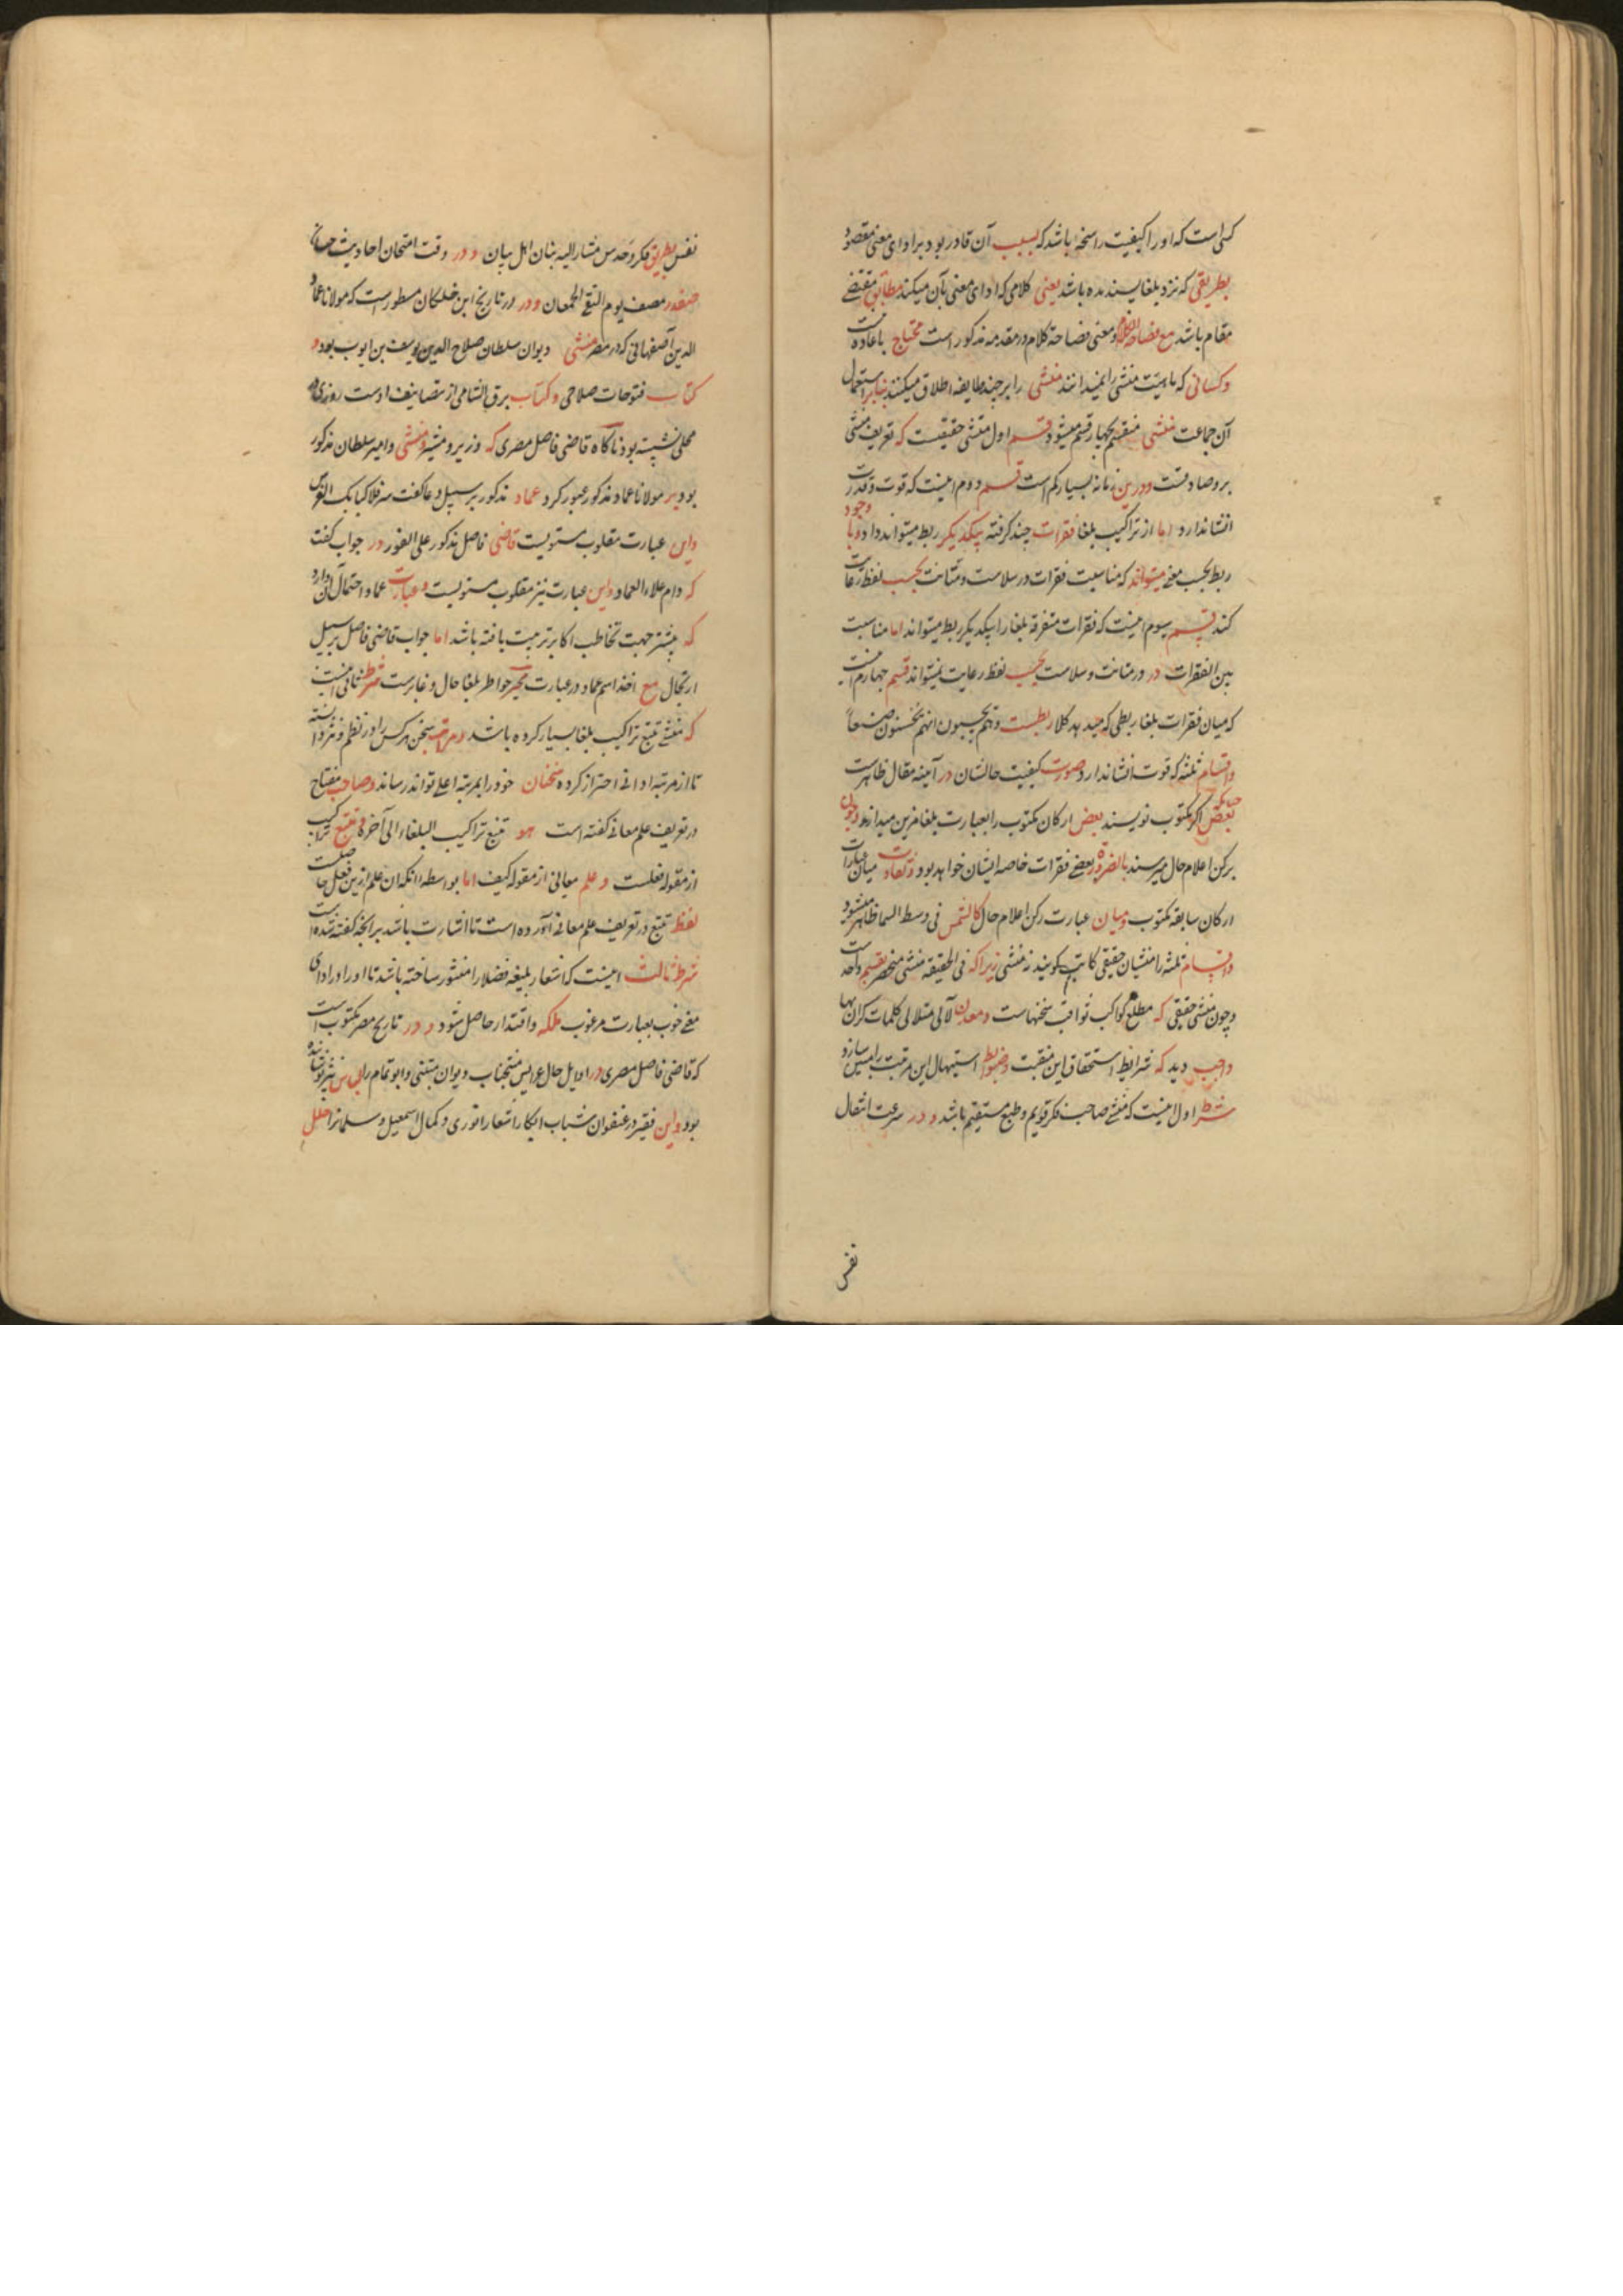 کسی است که او را کیفیت راسخه باشد که بسبب آن قادر بود بر ادای معنی مقصود
بطریقی که نزد بلغا پسندیده باشد یعنی کلامی که ادای معنی بآن میکند مطابق مقتضی
مقام باشد مع فصاحة الکلام و معنی فصاحة کلام در مقدمه مذکور است محتاج باعاده نیست
و کسانی که ماهیت منشی را نمیدانند منشی را بر چند طایفه اطلاق میکنند بنابر استعمال
آن جماعت منشی منقسم بچهار قسم میشود قسم اول منشی حقیقیست که تعریف منشی
برو صادقست و درین زمانه بسیار کم است قسم دوم اینست که قوت و قدرت
انشا ندارد اما از تراکیب بلغا فقرات چند گرفته بیکدیگر ربط میتواند داد و با وجود
ربط بحسب معنی میتواند که مناسبت فقرات در سلاست و متانت بحسب لفظ رعایت
کند قسم سیوم اینست که فقرات متفرقه بلغا را بیکدیگر ربط میتواند اما مناسبت
بین الفقرات در در متانت و سلاست بحسب لفظ رعایت نمیتواند قسم چهارم اینست
که میان فقرات بلغا ربطی که میدهد کلا ربطست و هم یحسبون انهم یحسنون صنعاً
و اقسام ثلثه که قوت انشا ندارد صورت کیفیت حالشان در آیینه مقال ظاهرست
چنانکه بعضی اگر مکتوب نویسند بعض ارکان مکتوب را بعبارت بلغا مزین میدارند و چون
برکن اعلام حال میرسند بالضروره بعضی فقرات خاصه ایشان خواهد بود و تفاوت میان عبارات
ارکان سابقه مکتوب و میان عبارت رکن اعلام حال کالشمس فی وسط السما ظاهر میشود
و اقسام ثلثه را منشیان حقیقی کاتب گویند نه منشی زیرا که فی الحقیقه منشی منحصر بقسم واحد است
و چون منشی حقیقی که مطلع کواکب ثواقب سخنهاست و معدن لآلی متلالی کلمات گران بها
واجب دید که شرایط استحقاق این منقبت و ضوابط استیهال این مرتبت را مبین سازد
شرط اول اینست که منشی صاحب فکر قویم و طبع مستقیم باشد و در سرعت انتقال
نفس
نفس بطریق فکر و حدس مشار الیه بنان اهل بیان و در وقت امتحان احادیث
صفدر مصف یوم التقی الجمعان و در در تاریخ ابن خلکان مسطور است که مولانا عماد
الدین اصفهانی که در مصر منشی دیوان سلطان صلاح الدین یوسف بن ایوب بود و
کتاب فتوحات صلاحی و کتاب برق الشامی از تصانیف اوست روزی در
محلی نشسته بود ناگاه قاضی فاضل مصری که وزیر و مشیر و منشی و امیر سلطان مذکور
بود بر مولانا عماد مذکور عبور کرد عماد مذکور بر سبیل دعا گفت سر فلا کبا بک الفرس
و این عبارت مقلوب مستویست قاضی فاضل مذکور علی الفور در جواب گفت
که دام علاء العماد و این عبارت نیز مقلوب مستویست و عبارت عماد احتمال آن دارد
که پیشتر جهت تخاطب اکابر ترتیب یافته باشد اما جواب قاضی فاضل بر سبیل
ارتجال مع اخذ اسم عماد در عبارت محیر خواطر بلغا حال و غابرست شرط ثانی اینست
که منشی تتبع تراکیب بلغا بسیار کرده باشد و مرتبه سخن هر کس را در نظم و نثر دانسته
تا از مرتبه ادانی احتراز کرده سخنان خود را بمرتبه اعلی تواند رساند و صاحب مفتاح
در تعریف علم معانی گفته است هو تتبع تراکیب البلغاء الی آخره و تتبع تراکیب
از مقوله فعلست و علم معانی از مقوله کیف اما بواسطه آنکه آن علم ازین فعل حاصلست
لفظ تتبع در تعریف علم معانی آورده است تا اشارت باشد برانچه گفته شده است
شرط ثالث اینست که اشعار بلیغه فضلا را منثور ساخته باشد تا او را در ادای
معنی خوب بعبارت مرغوب ملکه و اقتدار حاصل شود و در تاریخ مصر مکتوب است
که قاضی فاضل مصری در اوایل حال عرایس منتخبات دیوان متنبی و ابو تمام را لباس نثر پوشانیده
بود و این فقیر در عنفوان شباب ابکار اشعار انوری و کمال اسمعیل و سلمانرا حلل